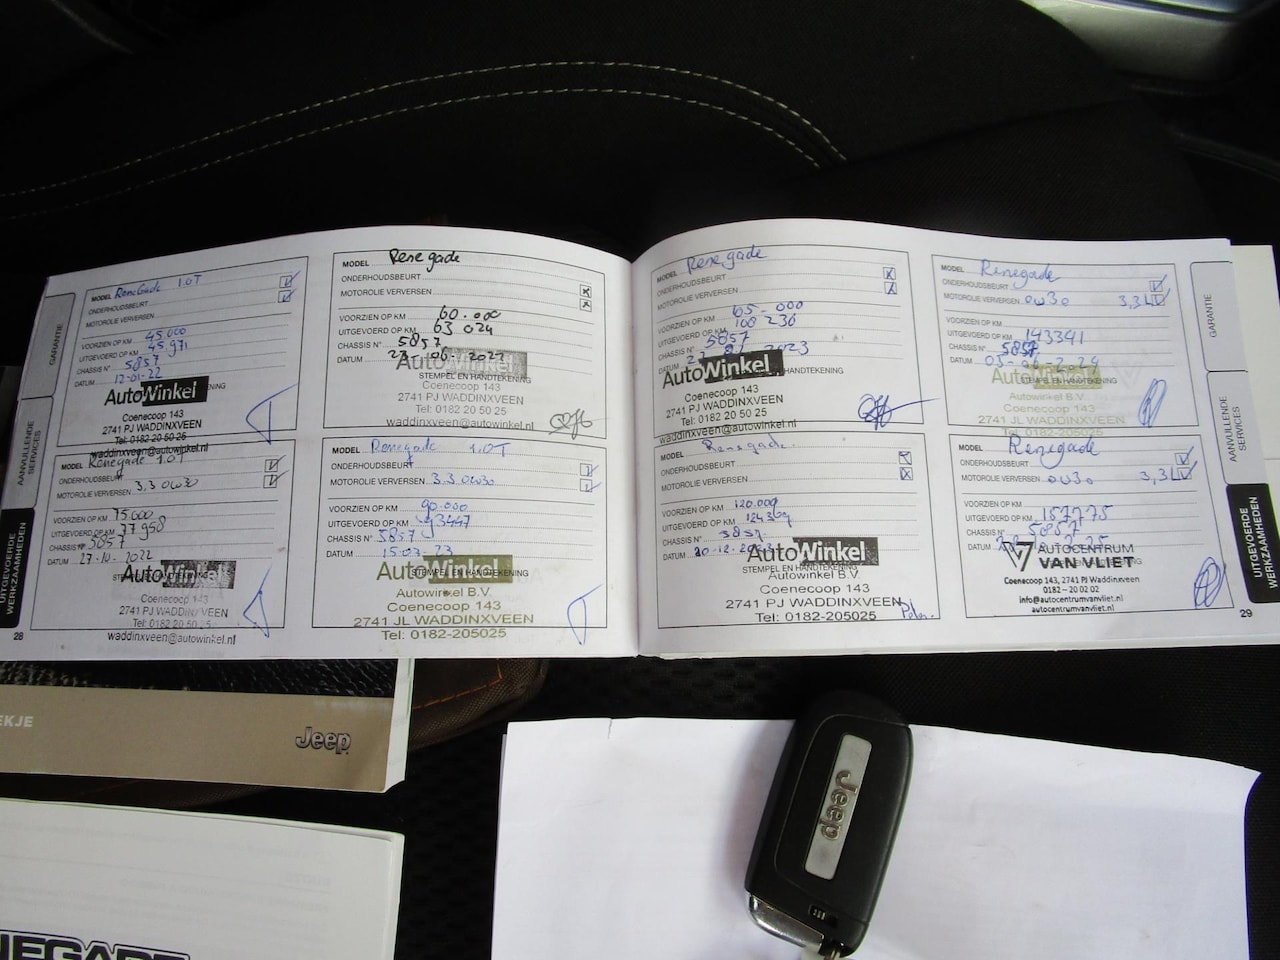 GARANTIE
AANVULLENDE SERVICES
UITGEVOERDE WERKZAAMHEDEN
28
MODEL ReneGade 1.0T
ONDERHOUDSBEURT
MOTOROLIE VERVERSEN
VOORZIEN OP KM 45.000
UITGEVOERD OP KM 45.971
CHASSIS N° 5857
DATUM 12-01-22
AutoWinkel
Coenecoop 143
2741 PJ WADDINXVEEN
Tel: 0182 20 50 25
waddinxveen@autowinkel.nl
MODEL Renegade 1.0T
ONDERHOUDSBEURT
MOTOROLIE VERVERSEN 3.3 0W30
VOORZIEN OP KM 75.000
UITGEVOERD OP KM 77958
CHASSIS N° 5857
DATUM 27-10-2022
AutoWinkel
Coenecoop 143
2741 PJ WADDINXVEEN
Tel: 0182 20 50 25
waddinxveen@autowinkel.nl
MODEL Renegade
ONDERHOUDSBEURT
MOTOROLIE VERVERSEN
VOORZIEN OP KM 60.000
UITGEVOERD OP KM 63 024
CHASSIS N° 5857
DATUM 06-2022
AutoWinkel
STEMPEL EN HANDTEKENING
Coenecoop 143
2741 PJ WADDINXVEEN
Tel: 0182 20 50 25
waddinxveen@autowinkel.nl
MODEL Renegade 1.0T
ONDERHOUDSBEURT
MOTOROLIE VERVERSEN 3.3 0W30
VOORZIEN OP KM 90.000
UITGEVOERD OP KM 93447
CHASSIS N° 5857
DATUM 15-03-23
AutoWinkel
STEMPEL EN HANDTEKENING
Autowinkel B.V.
Coenecoop 143
2741 JL WADDINXVEEN
Tel: 0182-205025
MODEL Renegade
ONDERHOUDSBEURT
MOTOROLIE VERVERSEN
VOORZIEN OP KM
UITGEVOERD OP KM 100 236
CHASSIS N° 5857
DATUM 2023
AutoWinkel
HANDTEKENING
Coenecoop 143
2741 PJ WADDINXVEEN
Tel: 0182 20 50 25
waddinxveen@autowinkel.nl
MODEL Renegade
ONDERHOUDSBEURT
MOTOROLIE VERVERSEN
VOORZIEN OP KM 120.000
UITGEVOERD OP KM
CHASSIS N° 5857
DATUM 20-12-
AutoWinkel
Autowinkel B.V.
Coenecoop 143
2741 PJ WADDINXVEEN
Tel: 0182-205025
MODEL Renegade
ONDERHOUDSBEURT
MOTOROLIE VERVERSEN 0W30 3,3L
VOORZIEN OP KM
UITGEVOERD OP KM 143341
CHASSIS N° 5857
DATUM
STEMPEL EN HANDTEKENING
Autowinkel B.V.
Coenecoop 143
2741 JL WADDINXVEEN
Tel: 0182-205025
MODEL Renegade
ONDERHOUDSBEURT
MOTOROLIE VERVERSEN 0W30 3,3L
VOORZIEN OP KM
UITGEVOERD OP KM 157775
CHASSIS N° 5857
DATUM
AUTOCENTRUM
VAN VLIET
Coenecoop 143, 2741 PJ Waddinxveen
0182 – 20 02 02
info@autocentrumvanvliet.nl
autocentrumvanvliet.nl
GARANTIE
AANVULLENDE SERVICES
UITGEVOERDE WERKZAAMHEDEN
29
EKJE
Jeep
Jeep
NEGADE